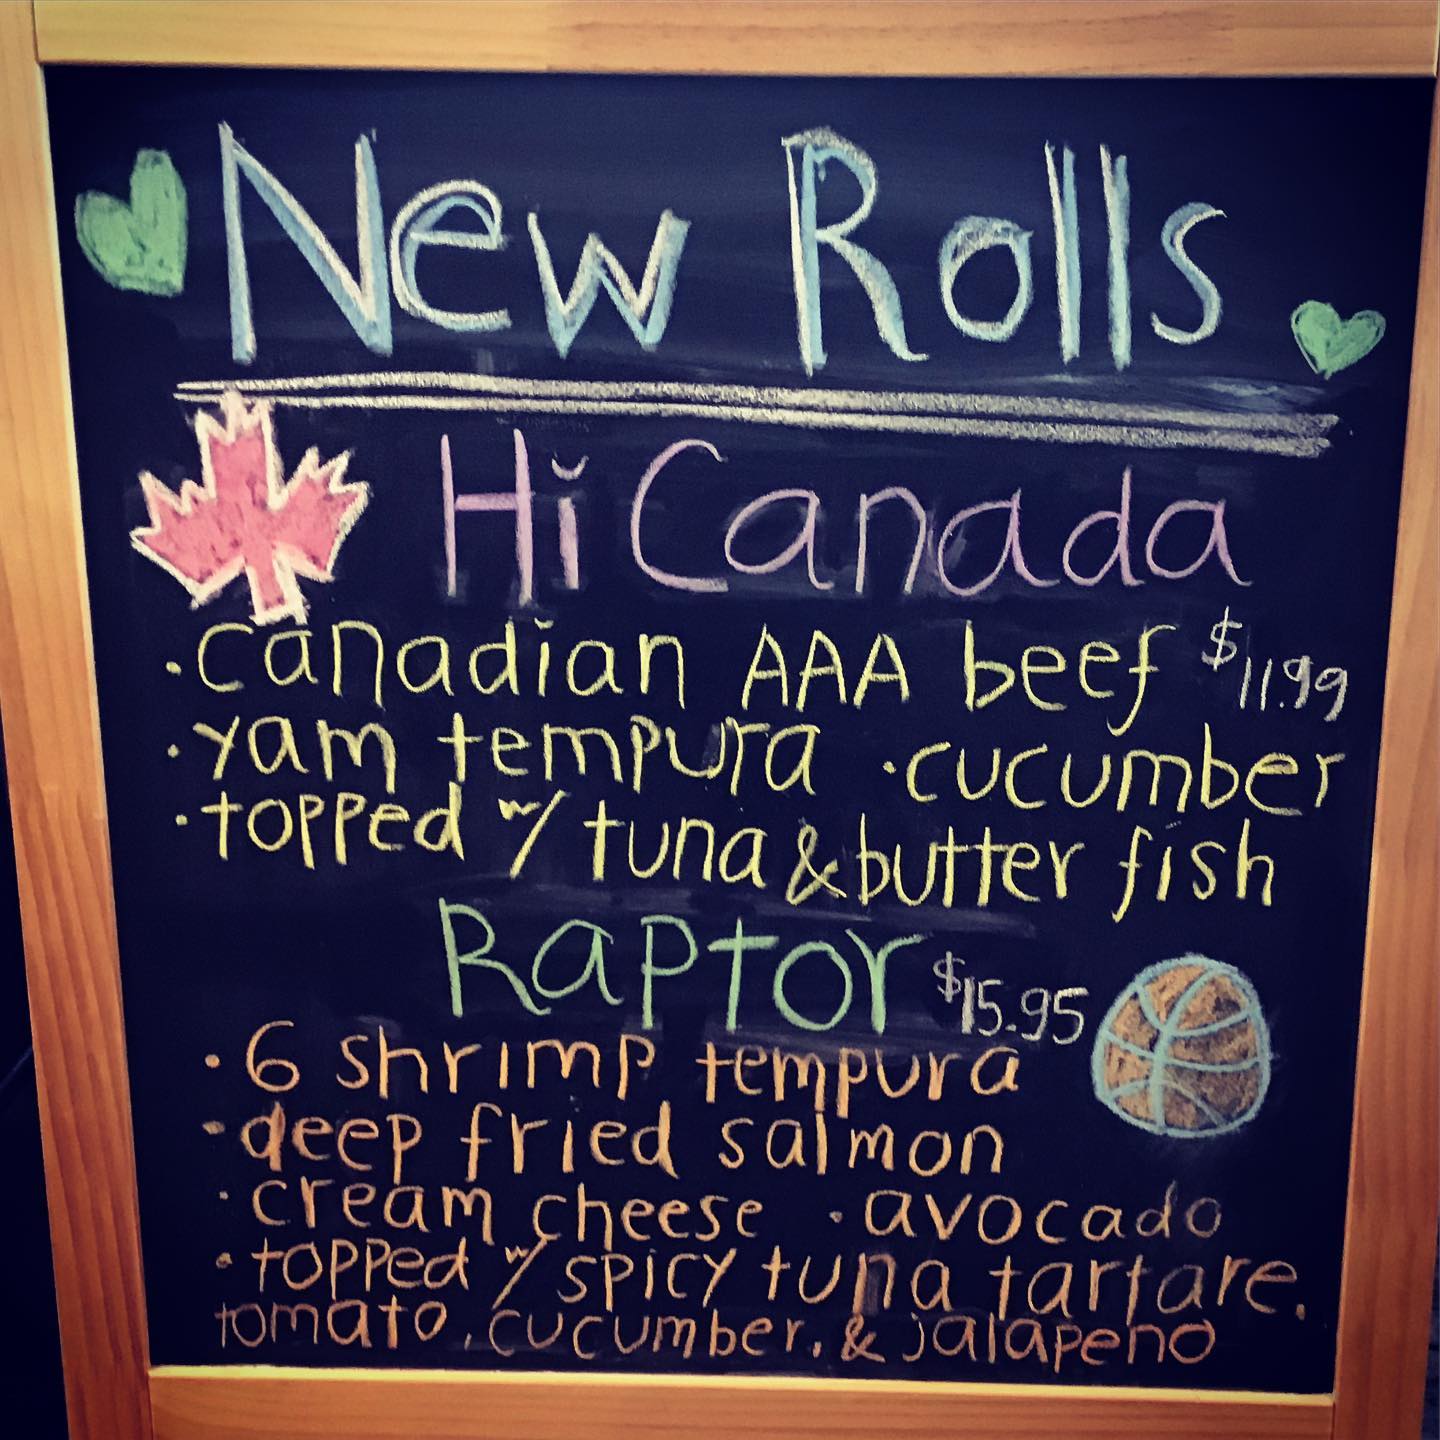 New Rolls
Hi Canada
· Canadian AAA beef $11.99
· yam tempura · cucumber
· topped w/ tuna & butter fish
Raptor $15.95
· 6 shrimp tempura
· deep fried salmon
· cream cheese · avocado
· topped w/ spicy tuna tartare,
tomato, cucumber, & jalapeno